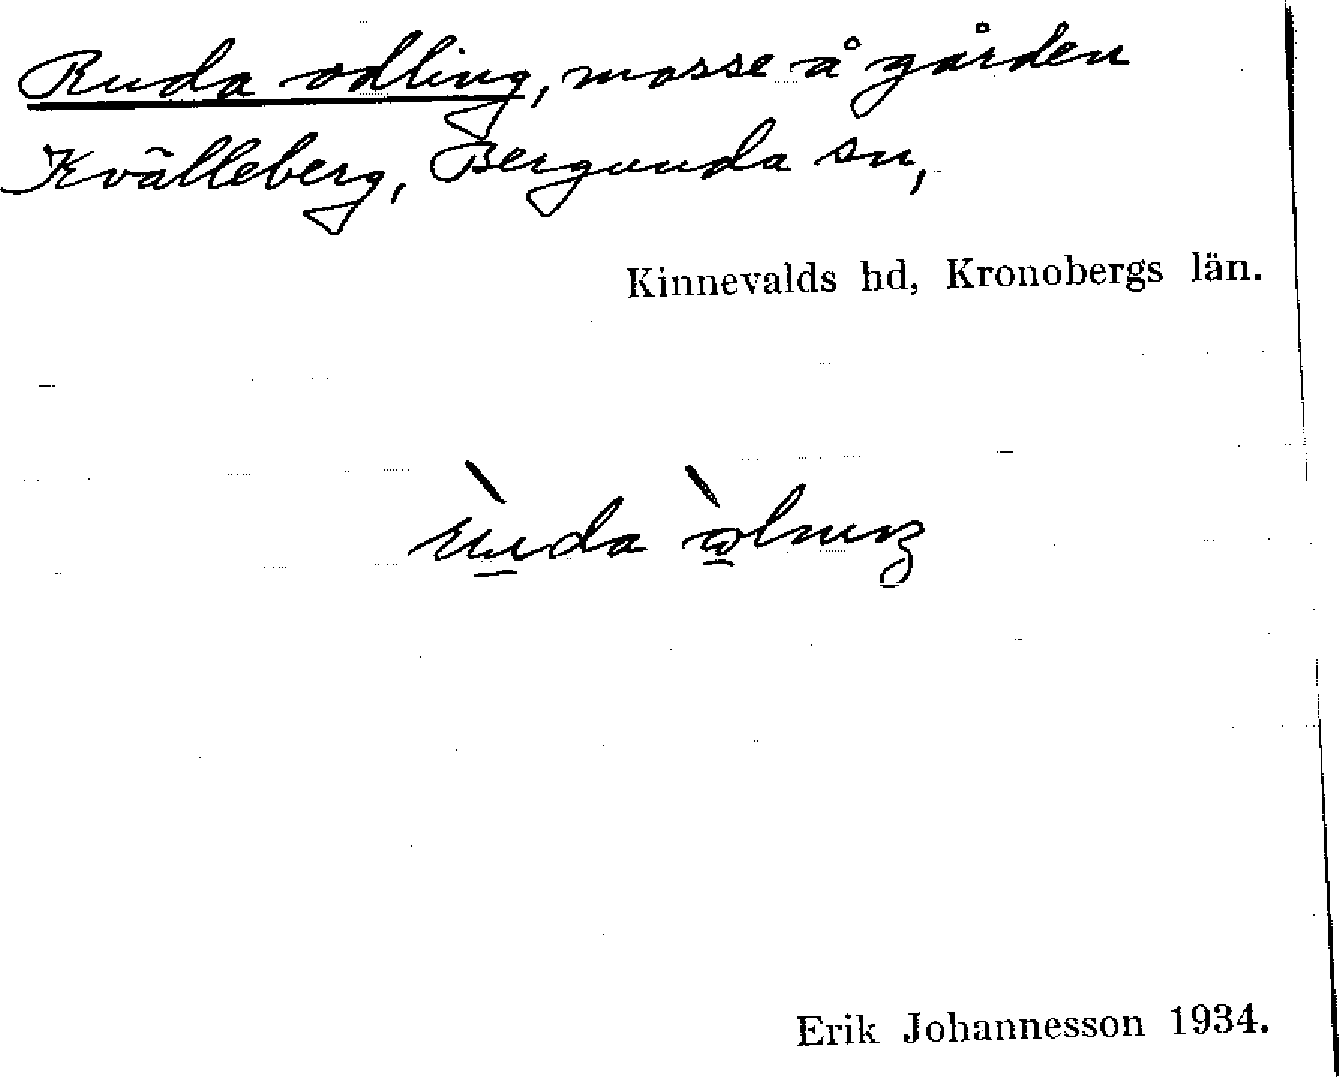 Ruda odling, mosse å gården
Kvälleberg, Bergunda sn,
Kinnevalds hd, Kronobergs län.
Erik Johannesson 1934.